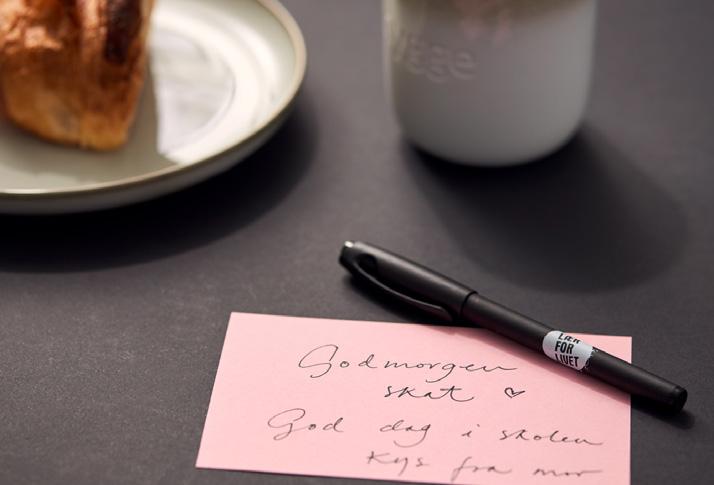 LÆR
FOR
LIVET
Godmorgen
skat ♡
God dag i skolen
Kys fra mor